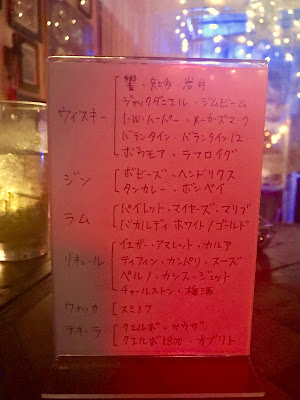 響・知多・岩井
ジャックダニエル・ジムビーム
ウィスキー I・W・ハーパー・メーカーズマーク
バランタイン・バランタイン12
ボウモア・ラフロイグ
ジン ボビーズ・ヘンドリクス
タンカレー・ボンベイ
ラム パイレット・マイヤーズ・マリブ
バカルディ ホワイト/ゴールド
イエガー・アマレット・カルア
リキュール ティフィン・カンパリ・スーズ
ペルノ・カシス・ジェット
チャールストン・梅酒
ウォッカ スミノフ
テキーラ クエルボ・サウザ
クエルボ1800・カブリト